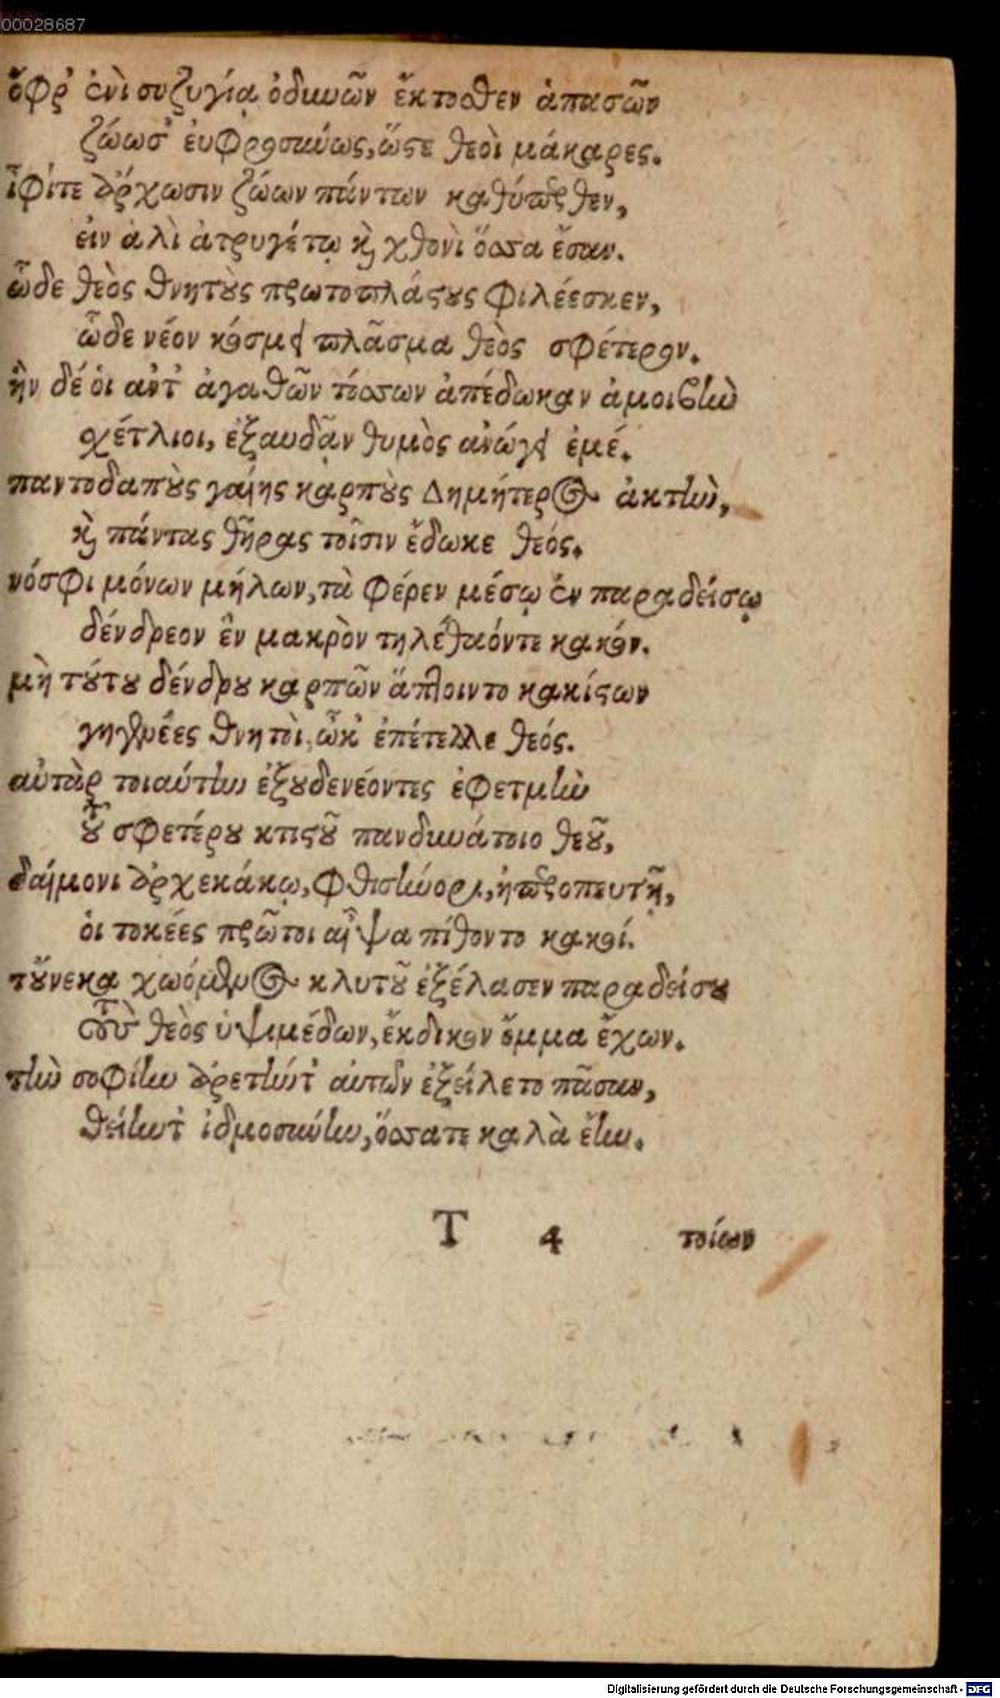 00028687
ὄφρ’ ἐνὶ συζυγίᾳ ὀδυνῶν ἔκτοσθεν ἁπασῶν
ζώωσ’ ἐυφροσύνως, ὥστε θεοὶ μάκαρες.
ἶφίτε ἄρχωσιν ζώων πάντων καθύπερθεν,
εἰν ἁλὶ ἀτρυγέτῳ καὶ χθονὶ ὅσσα ἔσαν.
ὧδε θεὸς θνητοὺς πρωτοπλάστους φιλέεσκεν,
ὧδε νέον κόσμει πλᾶσμα θεὸς σφέτερον.
ἣν δέ οἱ αὖτ’ ἀγαθῶν τόσσων ἀπέδωκαν ἀμοιβὴν
σχέτλιοι, ἐξαυδᾷν θυμὸς ἀνώγει ἐμέ.
παντοδαποὺς γαίης καρποὺς Δημήτερος ἀκτὴν,
καὶ πάντας θῆρας τοῖσιν ἔδωκε θεός.
νόσφι μόνων μήλων, τὰ φέρεν μέσῳ ἐν παραδείσῳ
δένδρεον ἓν μακρὸν τηλεθαόντε κακόν.
μὴ τούτου δένδρου καρπῶν ἅπτοιντο κακίστων
γηγενέες θνητοὶ, ὦκ’ ἐπέτελλε θεός.
αὐτὰρ τοιαύτην ἐξουδενέοντες ἐφετμὴν
τοῦ σφετέρου κτιστοῦ πανδυνάτοιο θεοῦ,
δαίμονι ἀρχεκάκῳ, φθισήνορι, ἠπεροπευτῇ,
οἱ τοκέες πρῶτοι αἶψα πίθοντο κακοί.
τοὔνεκα χωόμενος κλυτοῦ ἐξέλασεν παραδείσου
τοὺς θεὸς ὑψιμέδων, ἔκδικον ὄμμα ἔχων.
τὴν σοφίην ἀρετήντ’ αὐτῶν ἐξείλετο πᾶσαν,
θείηντ’ ἰδμοσύνην, ὅσσατε καλὰ ἔην.
T 4 τοίων
Digitalisierung gefördert durch die Deutsche Forschungsgemeinschaft - DFG